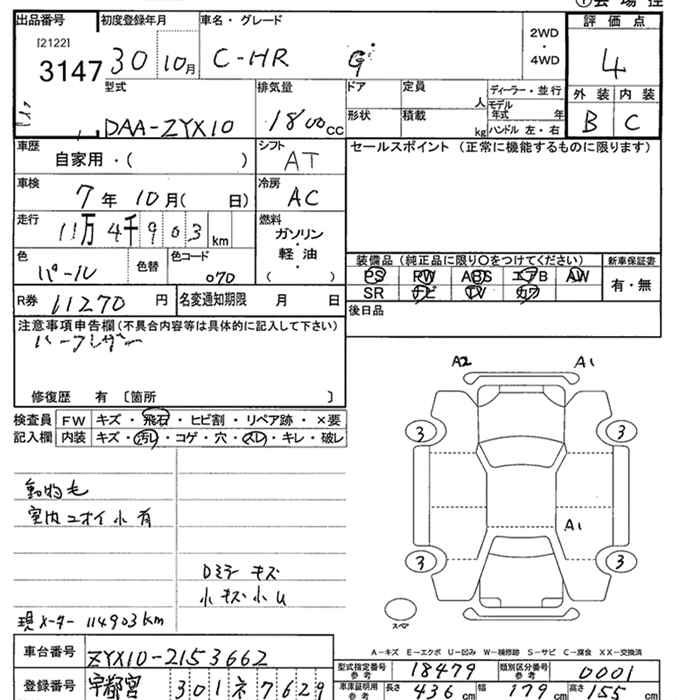 出品番号 初度登録年月 車名・グレード 評価点
[2122]
3147 30 10月 C-HR G 2WD・4WD 4
型式 排気量 ドア 定員 人 ディーラー・並行 外装 内装
DAA-ZYX10 1800cc 形状 積載 kg モデル年式 年 ハンドル 左・右 B C
車歴 自家用・( ) シフト AT セールスポイント (正常に機能するものに限ります)
車検 7年 10月( 日) 冷房 AC
走行 11万 4千 9 0 3 km 燃料 ガソリン・軽油・( )
色 パール 色替 色コード 070 装備品 (純正品に限り○をつけてください) 新車保証書
PS PW ABS エアB AW 有・無
SR ナビ TV カワ
R券 11270円 名変通知期限 月 日 後日品
注意事項申告欄 (不具合内容等は具体的に記入して下さい)
修復歴 有 [箇所 ]
検査員 FW キズ・飛石・ヒビ割・リペア跡・×要
記入欄 内装 キズ・汚レ・コゲ・穴・スレ・キレ・破レ
A2 A1
3 3
動物毛
室内ニオイ小有
A1
3 3
Dミラーキズ
小キズ小U
現メーター 114903km
スペア
A-キズ E-エクボ U-凹み W-補修跡 S-サビ C-腐食 XX-交換済
車台番号 ZYX10-2153662
型式指定番号 参考 18479 類別区分番号 参考 0001
登録番号 宇都宮 301 ネ 7629
車庫証明用 参考 長さ 436cm 幅 179cm 高さ 155cm